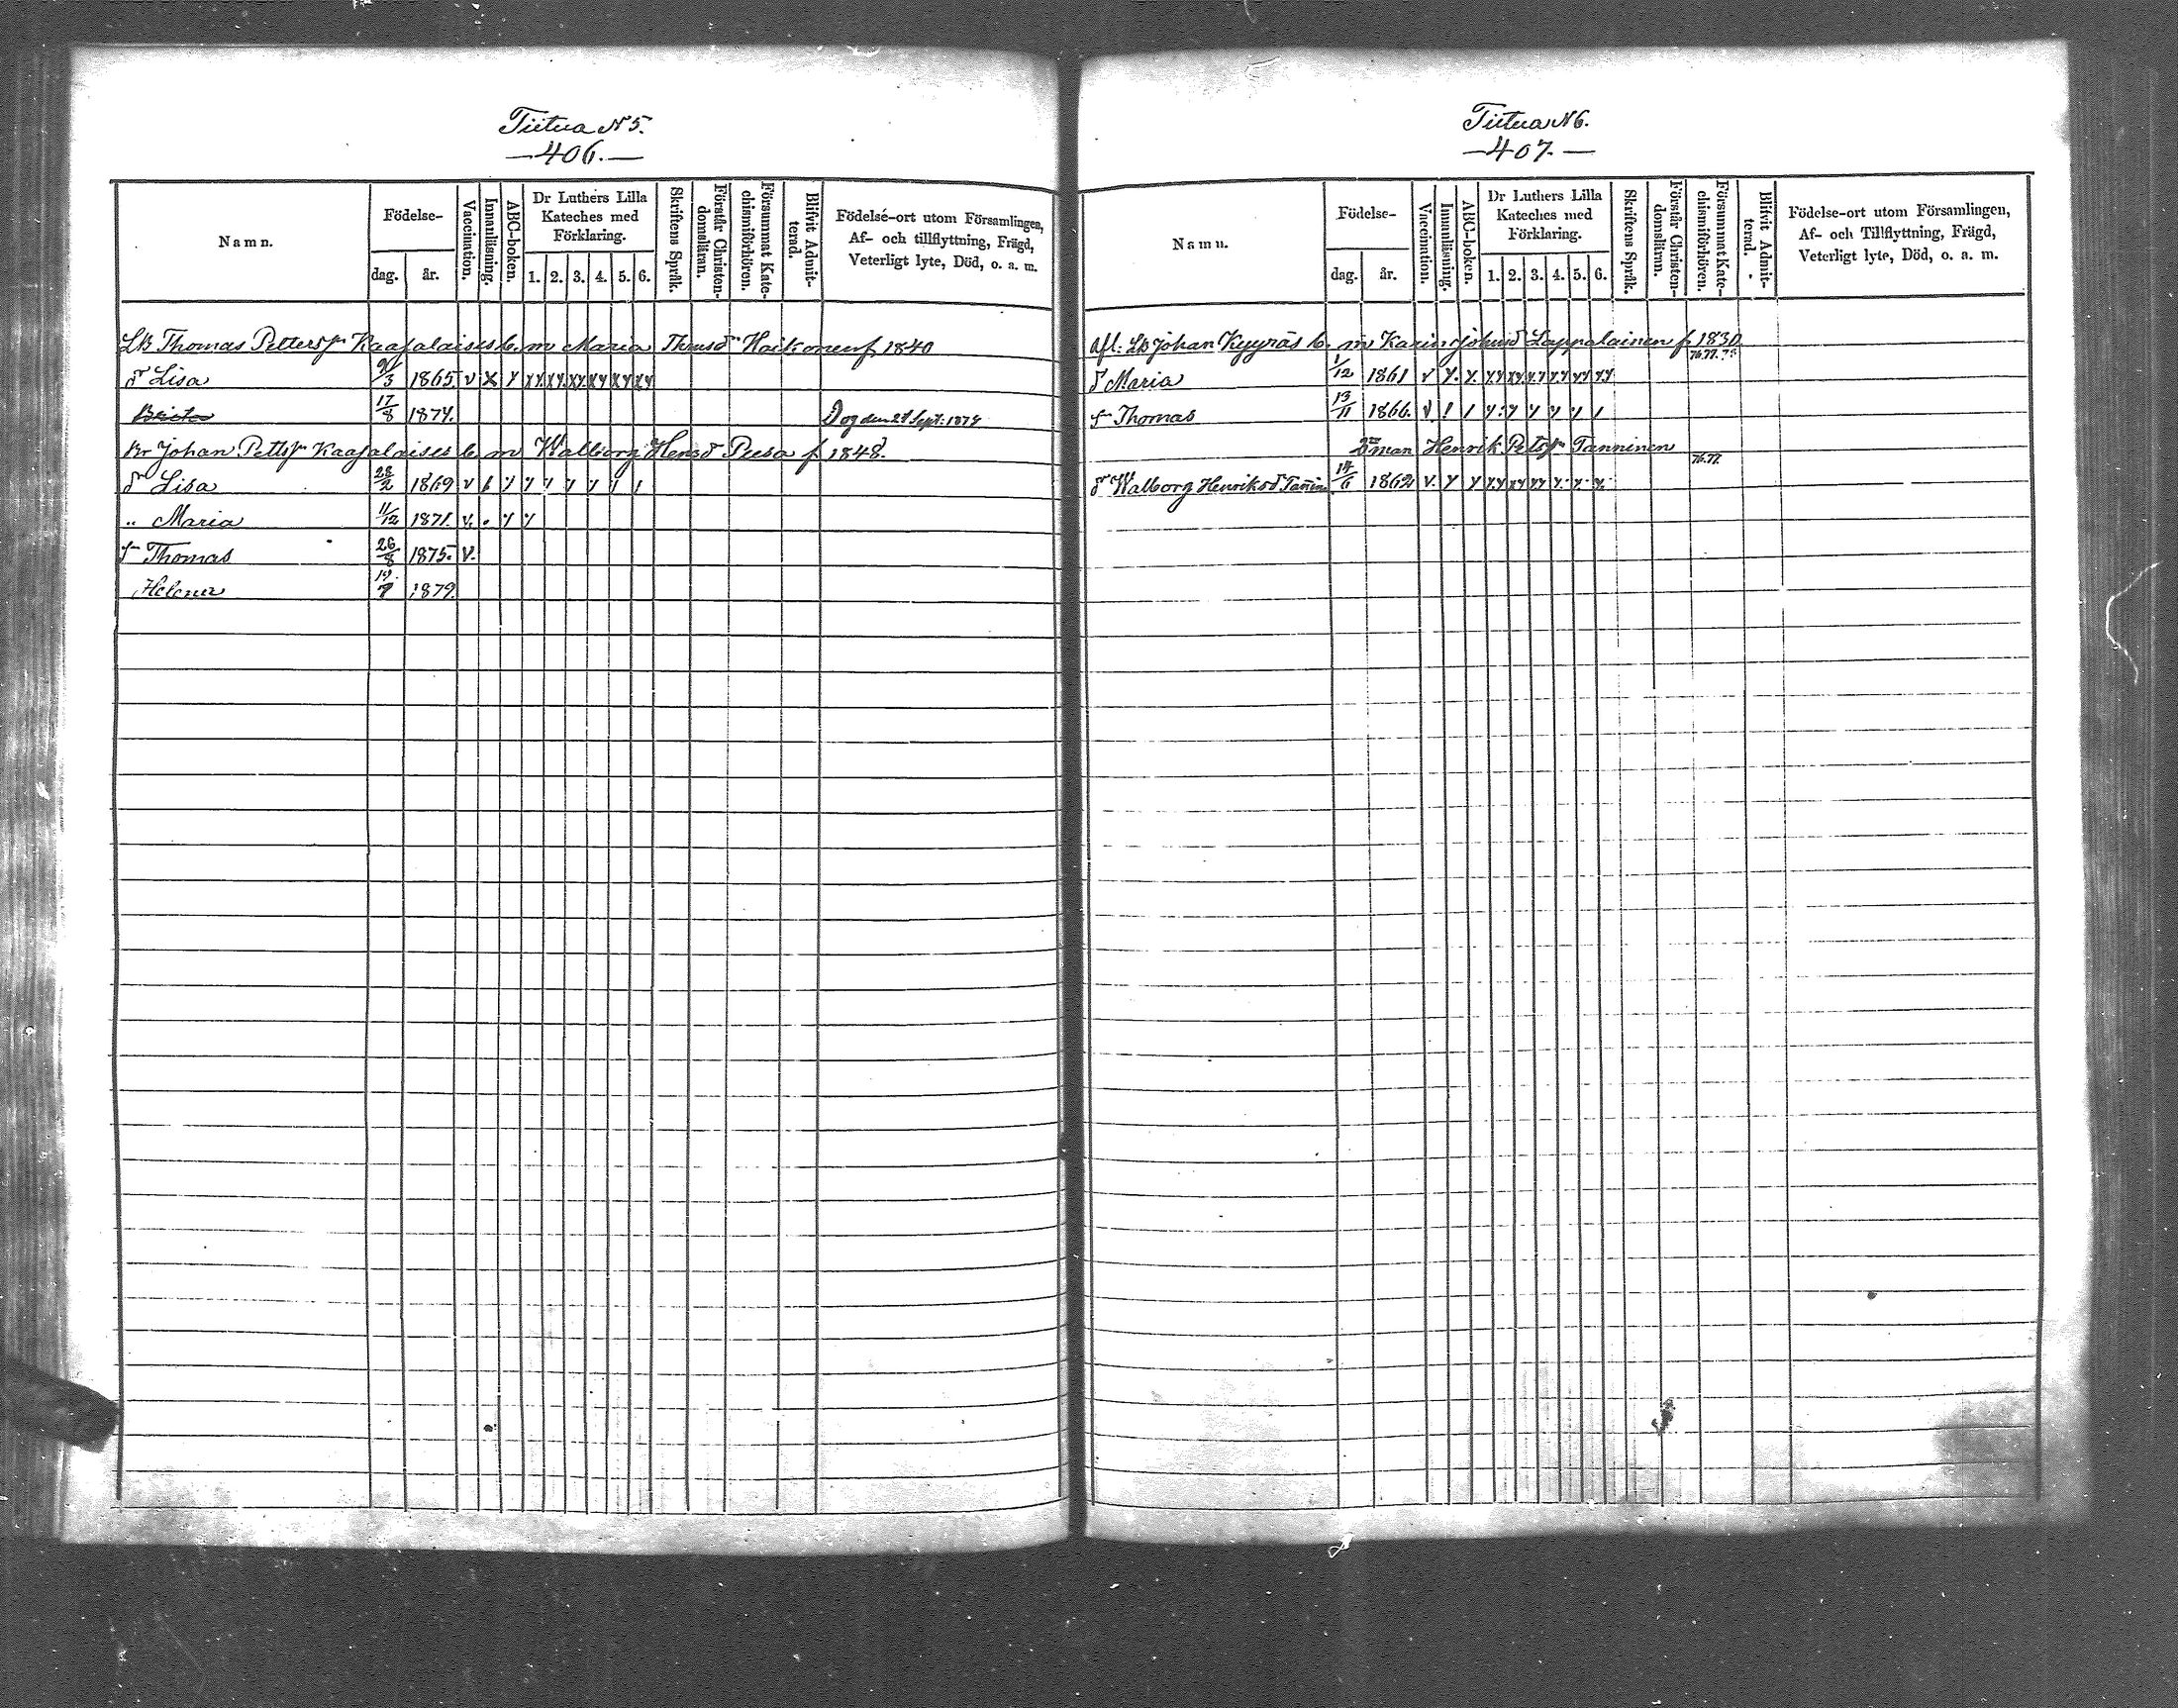 Tiitua N 5.
—406.—
Namn.
Födelse-
dag.
år.
Vaccination.
Innanläsning.
ABC-boken.
Dr Luthers Lilla
Kateches med
Förklaring.
1. 2. 3. 4. 5. 6.
Skriftens Språk.
Förstår Christen-
domsläran.
Försummat Kate-
chismiförhören.
Blifvit Admit-
terad.
Födelse-ort utom Församlingen,
Af- och tillflyttning, Frägd,
Veterligt lyte, Död, o. a. m.
Thomas Petters Kaajalaises b. m Maria Thmsdr Haikonen f. 1840
dr Lisa 9/3 1865. v x y xy xy xy xy xy xy
17/8 1874. Dog den 27 Sept: 1874
Br Johan Petts Kaajalaises b. m Walborg Hensd Peesa f 1848.
dr Lisa 28/2 1869 v
„ Maria 11/12 1871. v.
s Thomas 26/8 1875. v.
Helena 1879.
Tiitua N 6.
—407.—
Namn.
Födelse-
dag.
år.
Vaccination.
Innanläsning.
ABC-boken.
Dr Luthers Lilla
Kateches med
Förklaring.
1. 2. 3. 4. 5. 6.
Skriftens Språk.
Förstår Christen-
domsläran.
Försummat Kate-
chismiförhören.
Blifvit Admit-
terad.
Födelse-ort utom Församlingen,
Af- och Tillflyttning, Frägd,
Veterligt lyte, Död, o. a. m.
afl: Lb Johan Kyyräs b. m Karin Johnsd Lappalainen f 1830
d Maria 1/12 1861 v y. y. xy xy xy xy xy xy
s Thomas 13/11 1866. v
man Henrik Pets Tanninen 76.77.
d Walborg Henriksd 14/6 1862 v. y y